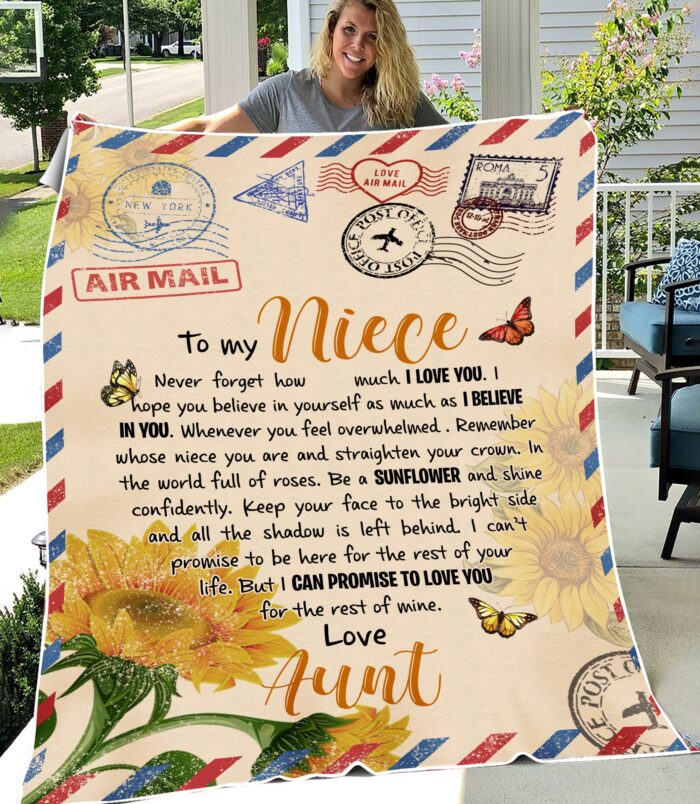 NEW YORK
LOVE
AIR MAIL
ROMA 5
POST OFFICE POST OFFICE
AIR MAIL
To my Niece
Never forget how much I LOVE YOU. I
hope you believe in yourself as much as I BELIEVE
IN YOU. Whenever you feel overwhelmed . Remember
whose niece you are and straighten your crown. In
the world full of roses. Be a SUNFLOWER and shine
confidently. Keep your face to the bright side
and all the shadow is left behind. I can't
promise to be here for the rest of your
life. But I CAN PROMISE TO LOVE YOU
for the rest of mine.
Love
Aunt
POST